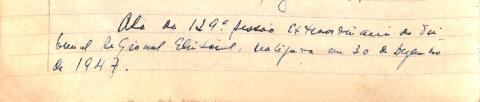 Ata da 129ª sessão extraordinaria do Tri-
bunal Regional Eleitoral, realizada em 30 de Dezembro
de 1947.